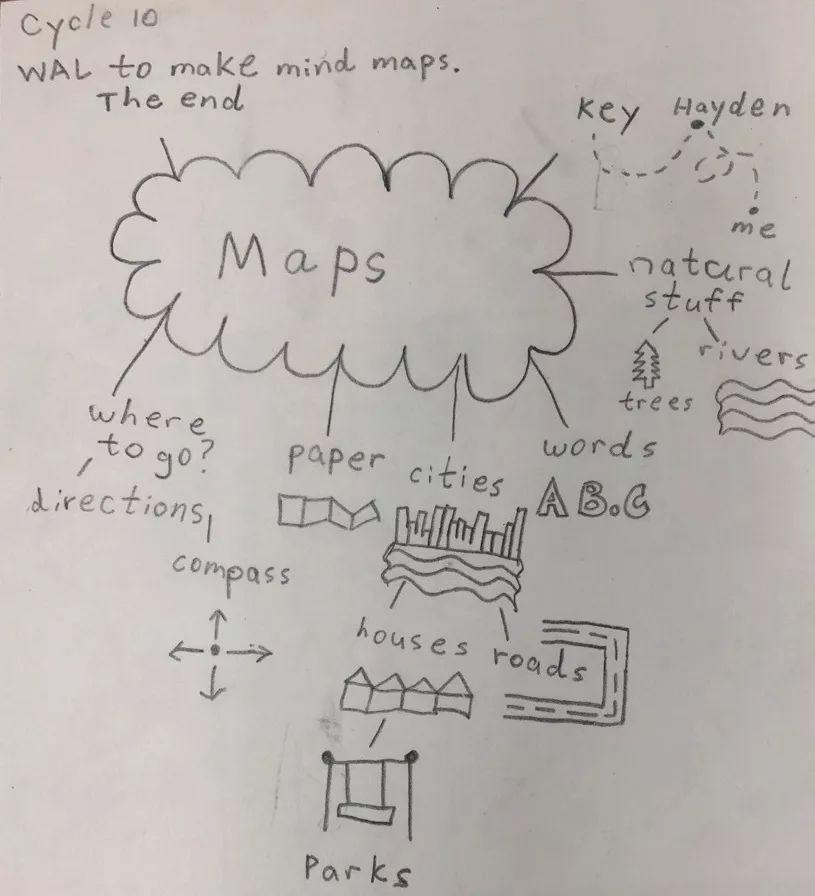 Cycle 10
WAL to make mind maps.
The end
Key Hayden
me
Maps
natural
stuff
rivers
trees
where
to go?
directions
compass
paper
cities
words
A B.C
houses
roads
Parks